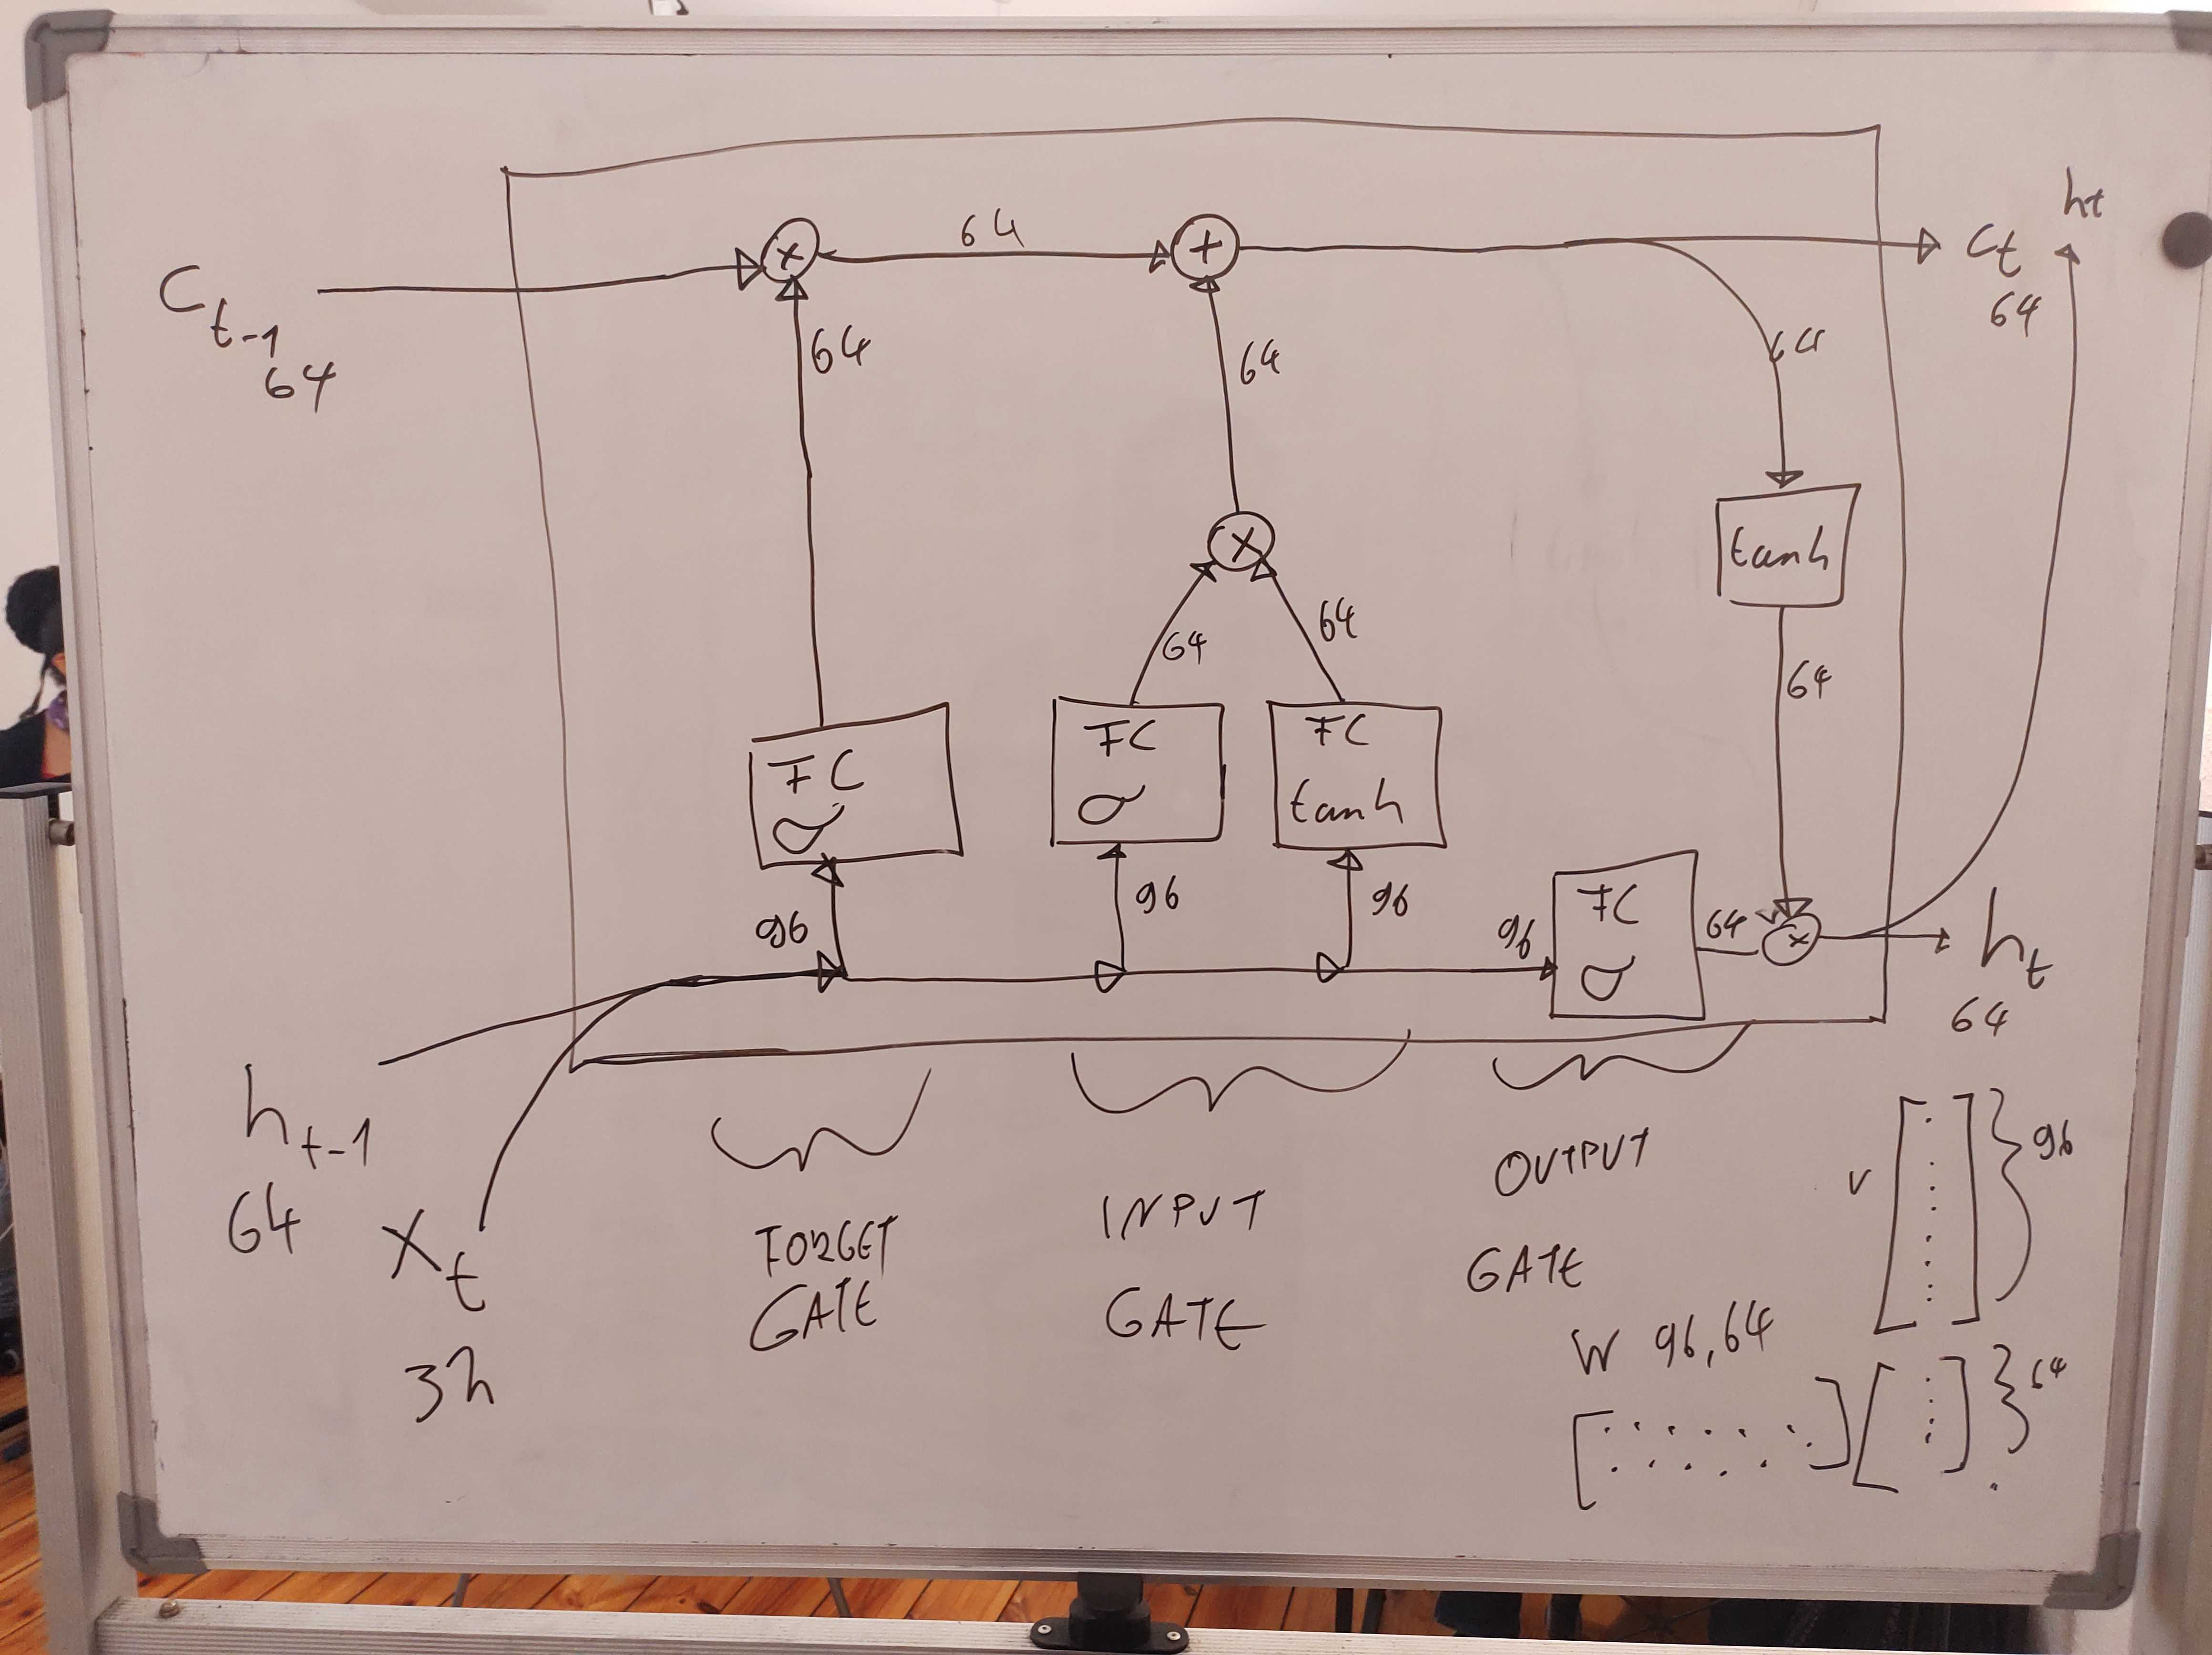 64
+
x
ht
Ct-1
64
Ct
64
64
64
64
x
tanh
64
64
64
FC
σ
FC
σ
FC
tanh
96
96
96
96
FC
σ
64
x
ht
64
ht-1
64
Xt
32
FORGET
GATE
INPUT
GATE
OUTPUT
GATE
v
96
W 96,64
64